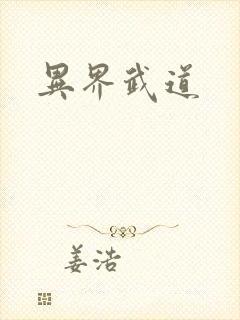 異界武道
姜浩